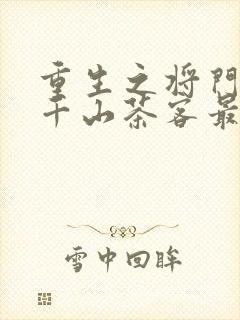 重生之将门
千山茶客最
雪中回眸